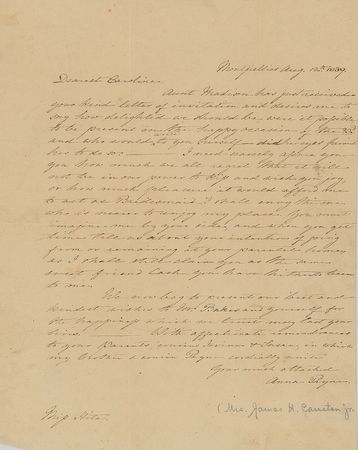 Montpellier Aug. 12th 1839.
Dearest Caroline
Aunt Madison has just received
your kind letter of invitation and desires me to
say how delighted we should be were it possible
to be present on the happy occasion of the
and who would to you himself did he
her to do so I need scarcely assure you
you how much we all regret that it will
not be in our power to and
or how much pleasure it would afford me
to act as Bridesmaid. I shall envy the one
who is nearer to enjoy my place. You must
imagine me by your side, and when you get
home tell us about your intentions of going
from or remaining at your parental home
as I shall claim you as the same
sweet friend Cash you have hitherto been
to me.
We now beg to present our best and
kindest wishes to Mr. Baker and yourself for
the happiness which we trust may last your
lives. With affectionate remembrances
to your Parents cousins in which
my brother & cousin Payne cordially unite
Yours much attached
Anna Payne.
Miss Hite.
(Mrs. James H. Causten Jr.